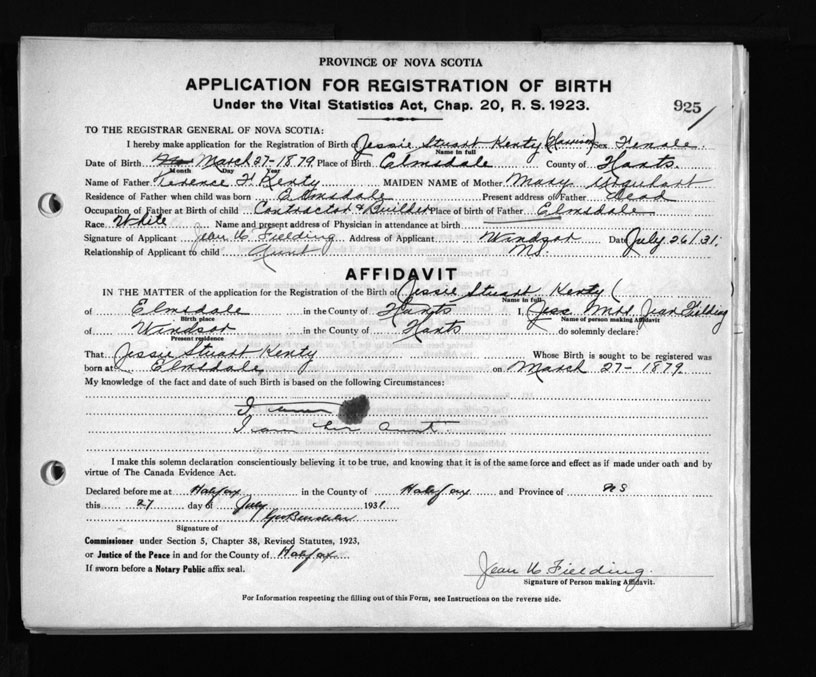 PROVINCE OF NOVA SCOTIA
APPLICATION FOR REGISTRATION OF BIRTH
Under the Vital Statistics Act, Chap. 20, R. S. 1923.
925
TO THE REGISTRAR GENERAL OF NOVA SCOTIA:
I hereby make application for the Registration of Birth of Jessie Stuart Kenty Sex Female
Name in full
Date of Birth March 27-1879 Place of Birth Elmsdale County of Hants.
Month Day Year
Name of Father Terence F Kenty MAIDEN NAME of Mother Mary Urquhart
Residence of Father when child was born Elmsdale Present address of Father Dead
Occupation of Father at Birth of child Contractor & Builder Place of birth of Father Elmsdale
Race White Name and present address of Physician in attendance at birth
Signature of Applicant Jean U Fielding Address of Applicant Windsor NS. Date July 26/31.
Relationship of Applicant to child Aunt
AFFIDAVIT
IN THE MATTER of the application for the Registration of the Birth of Jessie Stuart Kenty (
Name in full
of Elmsdale in the County of Hants I, Mrs Jean Fielding
Birth place Name of person making Affidavit
of Windsor in the County of Hants do solemnly declare:
Present residence
That Jessie Stuart Kenty Whose Birth is sought to be registered was
born at Elmsdale on March 27-1879.
My knowledge of the fact and date of such Birth is based on the following Circumstances:
I
I am her aunt
I make this solemn declaration conscientiously believing it to be true, and knowing that it is of the same force and effect as if made under oath and by
virtue of The Canada Evidence Act.
Declared before me at Halifax in the County of Halifax and Province of NS
this 27 day of July 1931
Signature of
Commissioner under Section 5, Chapter 38, Revised Statutes, 1923,
or Justice of the Peace in and for the County of Halifax
If sworn before a Notary Public affix seal.
Jean U Fielding.
Signature of Person making Affidavit.
For Information respecting the filling out of this Form, see Instructions on the reverse side.